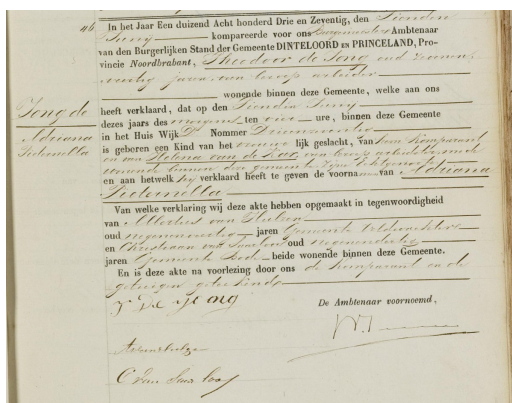 46
In het Jaar Een duizend Acht honderd Drie en Zeventig, den Tienden
Juny kompareerde voor ons Burgemeester Ambtenaar
van den Burgerlijken Stand der Gemeente DINTELOORD EN PRINCELAND, Pro-
vincie Noordbrabant, Theodoor de Jong oud
jaren van beroep arbeider
wonende binnen deze Gemeente, welke aan ons
Jong de
heeft verklaard, dat op den Tienden Juny
dezes jaars des morgens ten vier ure, binnen deze Gemeente
Adriana
in het Huis Wijk D Nommer
is geboren een Kind van het vrouwelijk geslacht, van hem Komparant
en van Helena van de Kar van beroep arbeidster mede
wonende binnen deze gemeente zijne Echtgenoote
en aan hetwelk hij verklaard heeft te geven de voornamen van Adriana
Van welke verklaring wij deze akte hebben opgemaakt in tegenwoordigheid
van Albertus van
oud jaren Gemeente Veldwachter
en Christiaan van Saarloos oud
jaren Gemeente Bode beide wonende binnen deze Gemeente.
En is deze akte na voorlezing door ons de Komparant en de
getuigen geteekend
T De Jong
De Ambtenaar voornoemd,
C van Saarloos